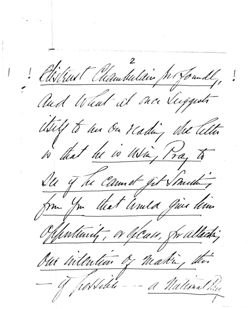 2
distrust Chamberlain profoundly,
and what at once suggests
itself to me on reading the letter
is that he is using Pray to
see if he cannot get something
from you that would give him
opportunity, or excuse, for attacking
our intention of making this
— if possible — a National